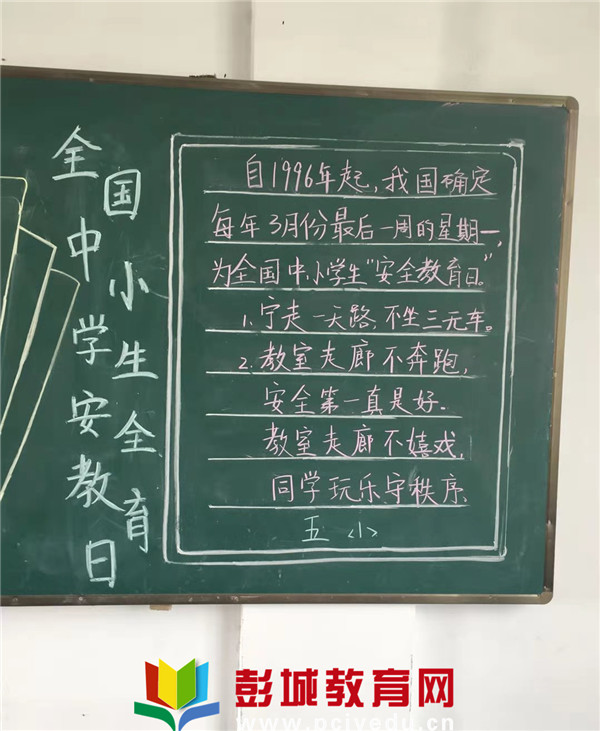 全国中小学生安全教育日
自1996年起,我国确定
每年3月份最后一周的星期一,
为全国中小学生“安全教育日。”
1.宁走一天路,不坐三无车。
2.教室走廊不奔跑,
安全第一真是好.
教室走廊不嬉戏,
同学玩乐守秩序.
五〈1〉
彭城教育网
www.pcjyedu.cn